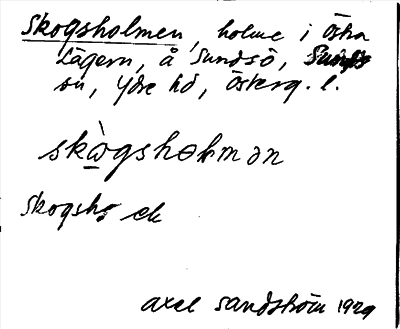 Skogsholmen, holme i Östra
Lägern, å Sundsö,
sn, Ydre hd, Österg. l.
skògshɵlmən
Skogsho ek
Axel Sandström 1929